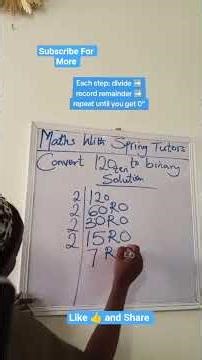 Subscribe For
More
Each step: divide ➡️
record remainder ➡️
repeat until you get 0"
Maths With Spring Tutors
Convert 120ten to binary
Solution
2 120
2 60 R0
2 30 R0
2 15 R0
7 R
Like 👍 and Share